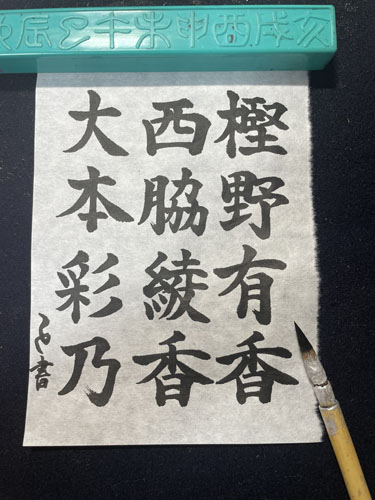 樫野有香
西脇綾香
大本彩乃
書
亥戌酉申未午巳辰